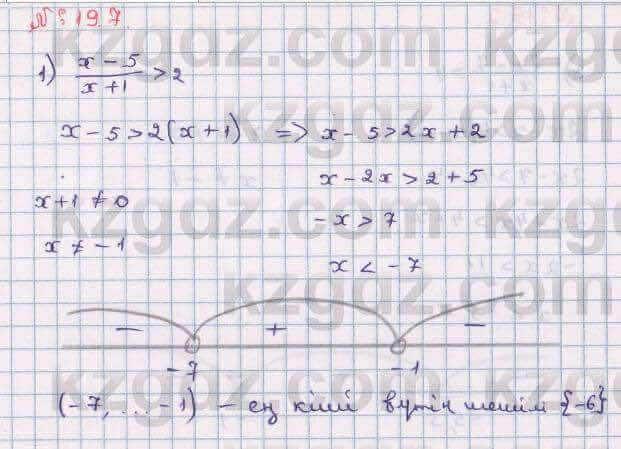 № 19.7.
1) (x - 5)/(x + 1) > 2
x - 5 > 2(x + 1) => x - 5 > 2x + 2
x - 2x > 2 + 5
x + 1 ≠ 0
- x > 7
x ≠ - 1
x < - 7
- + -
- 7 - 1
(- 7, ... - 1) - ең кіші бүтін шешім {-6}
kzgdz.com
kzgdz.com
kzgdz.com
kzgdz.com
kzgdz.com